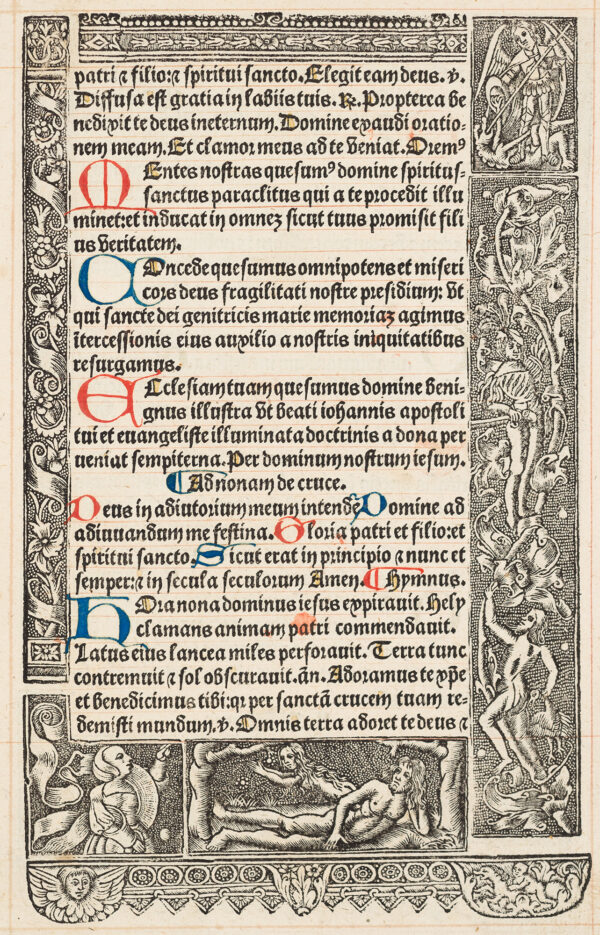 patri ⁊ filio:⁊ spiritui sancto. Elegit eam deus. v̶.
Diffusa est gratia in labiis tuis. R̶. Propterea be
nedixit te deus ineternum. Domine exaudi oratio-
nem meam. Et clamor meus ad te veniat. Oremꝰ
MEntes nostras quesumꝰ domine spiritus-
sanctus paraclitus qui a te procedit illu
minet:et inducat in omnez sicut tuus promisit fili
us veritatem.
COncede quesumus omnipotens et miseri
cors deus fragilitati nostre presidium: vt
qui sancte dei genitricis marie memoriaz agimus
ītercessionis eius auxilio a nostris iniquitatibus
resurgamus.
EEcclesiam tuam quesumus domine beni-
gnus illustra vt beati iohannis apostoli
tui et euangeliste illuminata doctrinis a dona per
ueniat sempiterna. Per dominum nostrum iesum.
Ad nonam de cruce.
Deus in adiutorium meum intendē Domine ad
adiuuandum me festina. Gloria patri et filio:et
spiritui sancto Sicut erat in principio ⁊ nunc et
semper:⁊ in secula seculorum Amen. Hymnus.
HOra nona dominus iesus expirauit. Hely
clamans animam patri commendauit.
Latus eius lancea miles perforauit. Terra tunc
contremuit ⁊ sol obscurauit. añ. Adoramus te xp̄e
et benedicimus tibi:qꝛ per sanctā crucem tuam re-
demisti mundum. v̶. Omnis terra adoret te deus ⁊